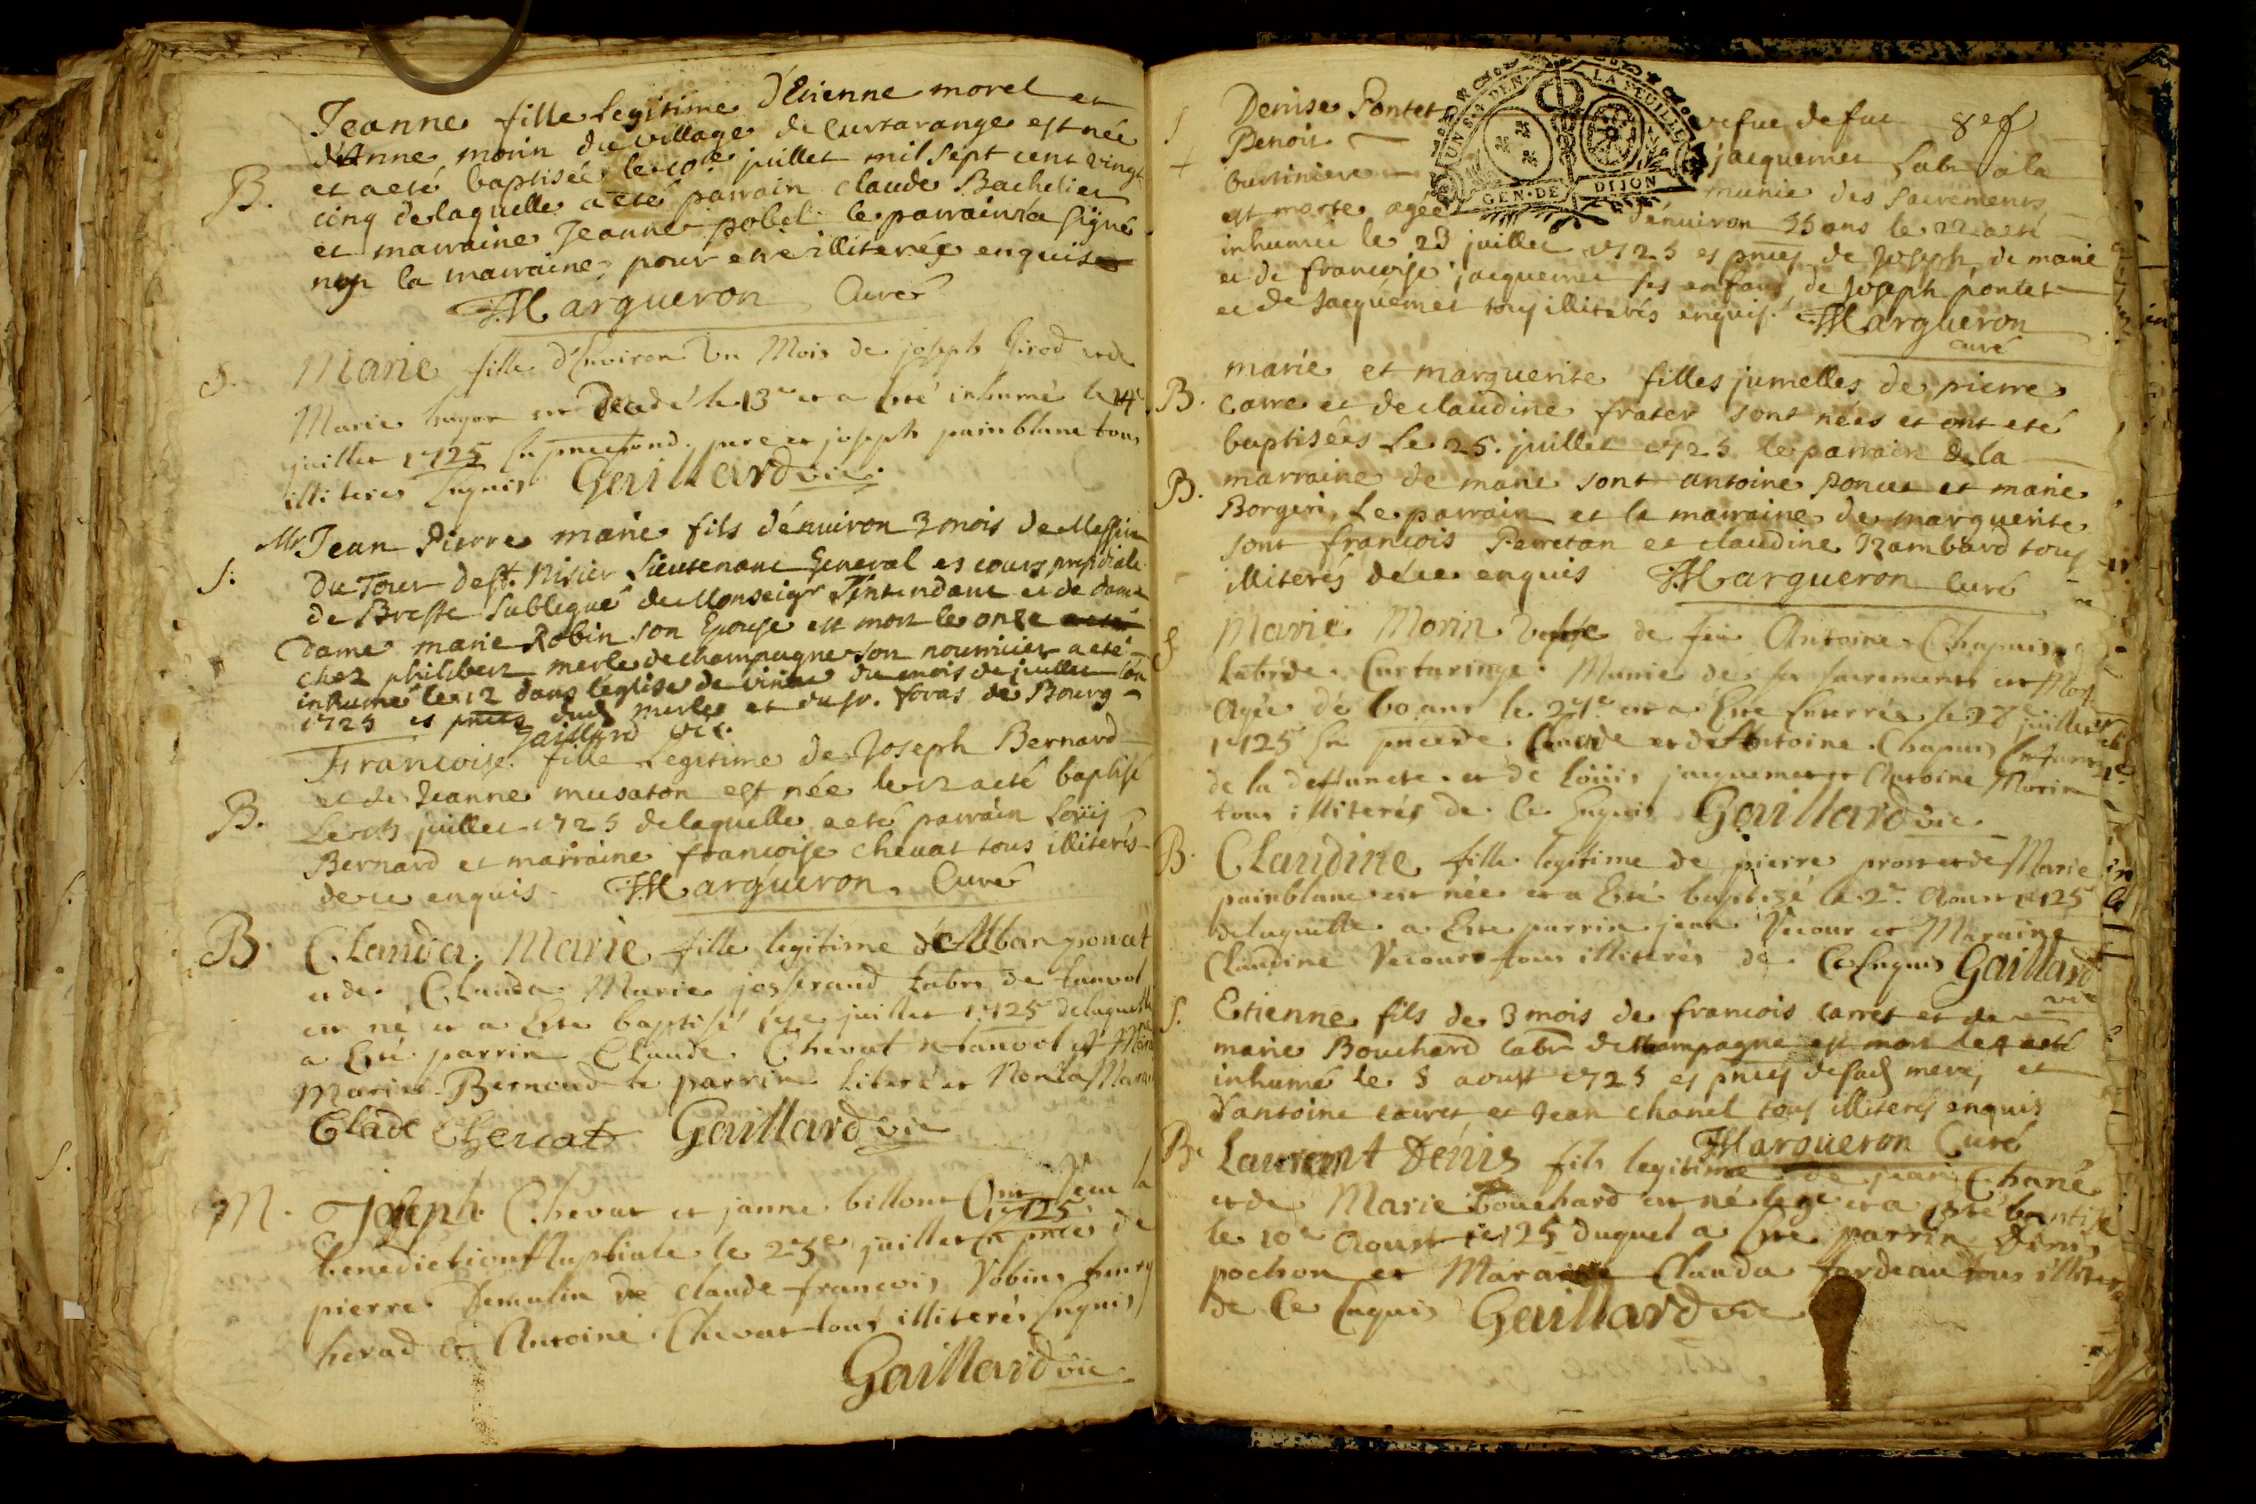 Jeanne fille Legitime d'Etienne morel et
d'Anne morin du village de Curtarange est née
B. et a eté baptisée le 10e juillet mil sept cent vingt
cinq de laquelle a eté parrain claude Bachelier
et marraine Jeanne pobel le parrain a signé
non la marraine, pour etre illiterée enquise
Margueron Curé
S. Marie fille d'Environ Un Mois de joseph Girod et de
Marie est Decedé le 13e et a eté inhumé le 14e
juillet 1725 pere et joseph painblanc tous
illiteres Enquis Gaillard vic.
Mr Jean Pierre marie fils d'énuiron 3 mois de Messire
S: Du Tour de st. Nisier Lieutenant General es cours presidiale
de Bresse Subligué de Monseigr L'intendant et de dame
Dame marie Robin son Epouse est mort le onze
chez philibert merle de champagne son nourricier a eté
inhumé le 12 dans l'église de viriat du mois de juillet
1725 es pnces dud merle et du sr. de Bourg
Gaillard vic.
Francoise fille Legitime de Joseph Bernard
et de Jeanne musaton est née le 12 a eté baptisé
B. Le juillet 1725 de laquelle a eté parrain Loüis
Bernard et marraine francoise chevat tous illiterés
de ce enquis Margueron. Curé
B. Clauda Marie fille legitime d'Alban ponat
et de Clauda Marie josserand Labrs de tanvol
est né et a Eté baptisé juillet 1725 de laquelle
a Eté parrin Claude Chevat
Marie Bernoud le parrin literé et Non la
Clade Chevat Gaillard vic
M. Joseph Chevat et janne billout Ont Recu la
benediction Nuptiale le 23e juillet 1725 En pnces de
pierre Demulin de claude francois
et Antoine Chevat tous illiterés Enquis
Gaillard vic.
S Denise Pontet vefue de fue 8 ef
+ Benoit jacquemet Labr a la
munie des sacrements
est morte agée d'énuiron 55 ans le 22 a eté
inhumée le 23 juillet 1725 es pnces de Joseph, de marie
et de francoise jacquemet ses enfans, de Joseph pontet
et de Jacquemet tous illiterés enquis. Margueron
curé
UN S. 4 DEN. LA FEUILLE
GEN. DE DIJON
marie et marguerite filles jumelles de pierre
B. carre et de claudine frater sont nées et ont eté
baptisées Le 25. juillet 1725 le parrain de la
B. marraine de marie sont antoine poncet et marie
Borgeri, Le parrain et la marraine de marguerite
sont francois Perretan et claudine Rambard tous
illiterés de ce enquis Margueron Curé
S Marie Morin Vefve de feu Antoine Chapuis
Labr de Curtaringe Munie de ses sacrements est
Agée de 60 ans le 27e et a Eté Enterrée le 28e juillet
1725 En pnce de Claude et de Antoine Chapuis Enfans
de la deffuncte et de Loüis jacquemet et Antoine Morin
tous illiterés de Ce Enquis Gaillard vic.
B. Claudine fille legitime de pierre prost et de Marie
painblanc est née et a Eté baptizé le 2e Aoust 1725
de laquelle a Eté parrin jean Vecour et Maraine
Claudine Vecour tous illiterés de Ce Enquis Gaillard
vic
S. Etienne fils de 3 mois de francois carret et de
marie Bouchard labr de champagne est mort le 4 a eté
inhumé le 5 aoust 1725 es pnces de sad mere, et
d'antoine carret, et Jean chanel tous illiterés enquis
Margueron Curé
B. Laurent Denis fils legitime de jean Chanel
et de Marie Bouchard est né le 9e et a eté baptisé
le 10e Aoust 1725 duquel a Eté parrin Denis
pochon et Maraine Clauda tardeau tous
de Ce Enquis Gaillard vic